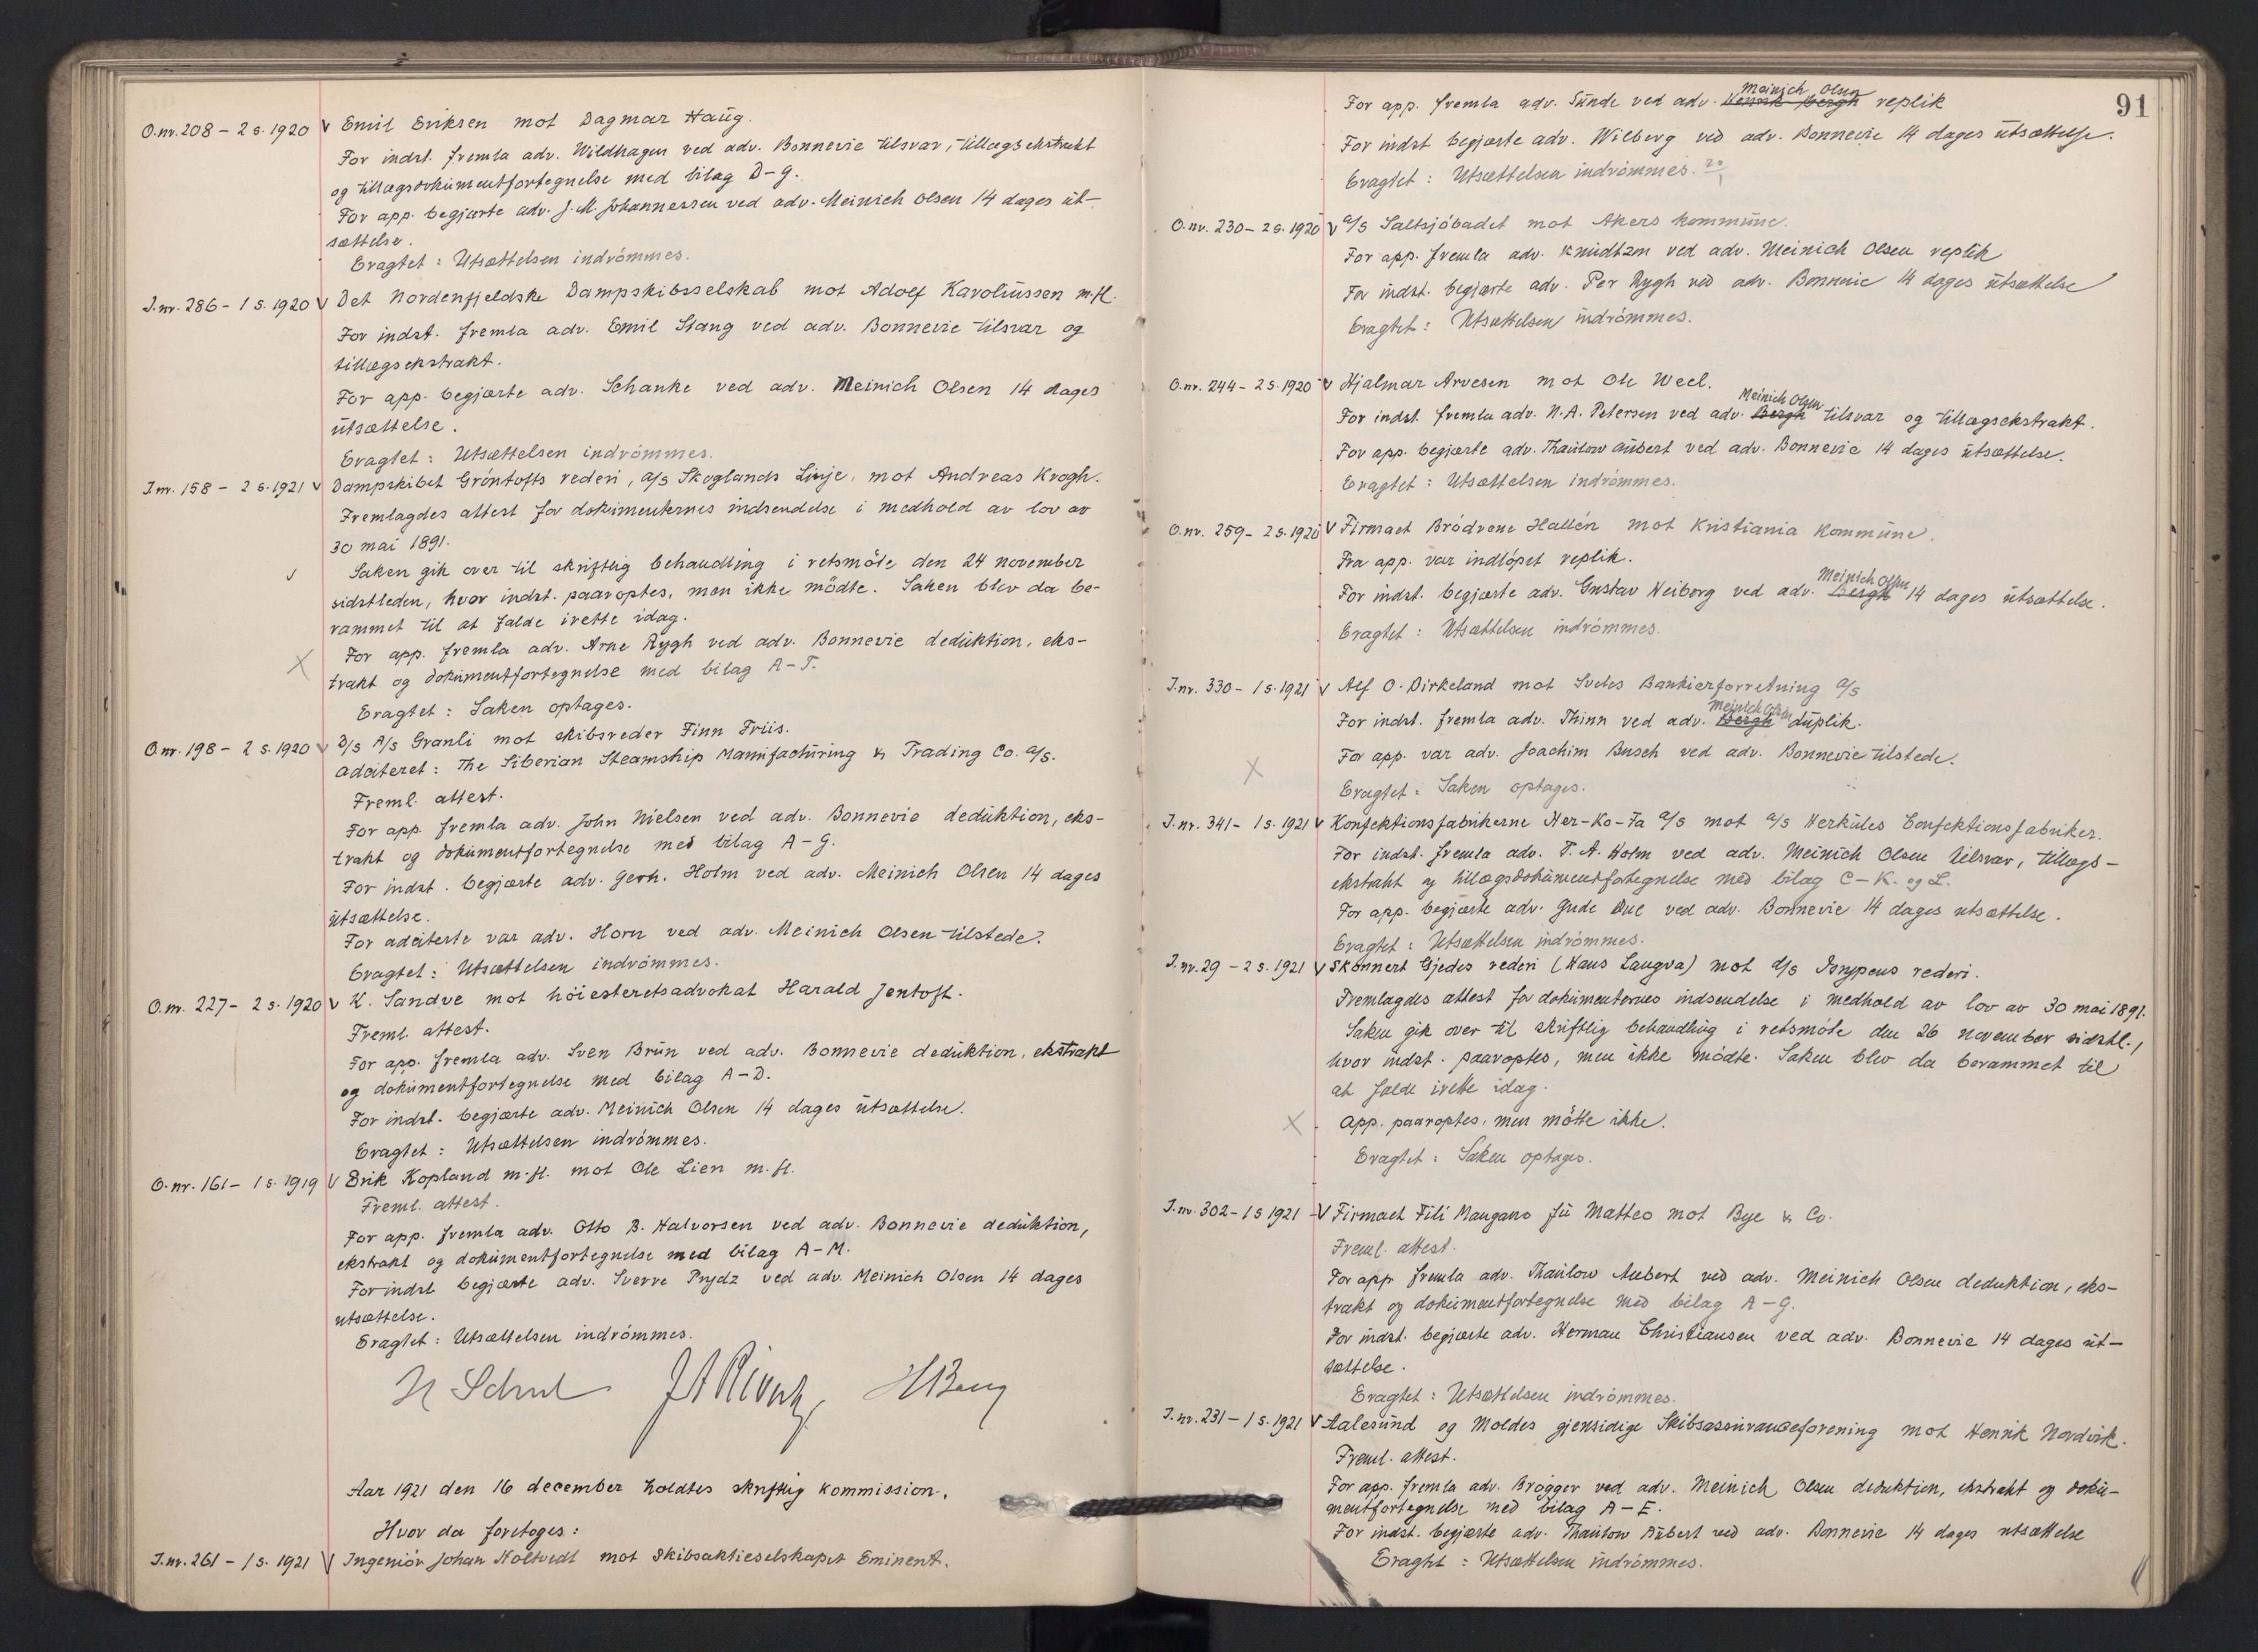 O.nr. 208 – 2 s. 1920 V Emil Eriksen mot Dagmar Haug.
For indst. fremla adv. Wildhagen ved adv. Bonnevie tilsvar, tillægsekstrakt
og tillægsdokumentfortegnelse med bilag D–G.
For app. begjærte adv. J. M. Johannessen ved adv. Meinich Olsen 14 dages ut-
sættelse.
Eragtet: Utsættelsen indrömmes.
I.nr. 286 – 1 s. 1920 V Det Nordenfjeldske Dampskibsselskab mot Adolf Karoliussen m.fl.
For indst. fremla adv. Emil Stang ved adv. Bonnevie tilsvar og
tillægsekstrakt.
For app. begjærte adv. Schanke ved adv. Meinich Olsen 14 dages
utsættelse.
Eragtet: Utsættelsen indrömmes.
I.nr. 158 – 2 s. 1921 V Dampskibet Gröntofts rederi, A/S Skoglands Linje, mot Andreas Krogh.
Fremlagdes attest for dokumenternes indsendelse i medhold av lov av
30 mai 1891.
Saken gik over til skriftlig behandling i retsmöte den 24 november
sidstleden, hvor indst. paaroptes, men ikke mödte. Saken blev da be-
rammet til at falde irette idag.
For app. fremla adv. Arne Rygh ved adv. Bonnevie deduktion, eks-
trakt og dokumentfortegnelse med bilag A–T.
Eragtet: Saken optages.
O.nr. 198 – 2 s. 1920 V D/S A/S Granli mot skibsreder Finn Friis.
Adciteret: The Siberian Steamship Manufacturing & Trading Co. A/S.
Freml. attest.
For app. fremla adv. John Nielsen ved adv. Bonnevie deduktion, eks-
trakt og dokumentfortegnelse med bilag A–G.
For indst. begjærte adv. Gerh. Holm ved adv. Meinich Olsen 14 dages
utsættelse.
For adciterte var adv. Horn ved adv. Meinich Olsen tilstede.
Eragtet: Utsættelsen indrömmes.
O.nr. 227 – 2 s. 1920 V K. Sandve mot höiesteretsadvokat Harald Jentoft.
Freml. attest.
For app. fremla adv. Sven Brun ved adv. Bonnevie deduktion, ekstrakt
og dokumentfortegnelse med bilag A–D.
For indst. begjærte adv. Meinich Olsen 14 dages utsættelse.
Eragtet: Utsættelsen indrömmes.
O.nr. 161 – 1 s. 1919 V Erik Kopland m.fl. mot Ole Lien m.fl.
Freml. attest.
For app. fremla adv. Otto B. Halvorsen ved adv. Bonnevie deduktion,
ekstrakt og dokumentfortegnelse med bilag A–M.
For indst. begjærte adv. Sverre Prydz ved adv. Meinich Olsen 14 dages
utsættelse.
Eragtet: Utsættelsen indrömmes.
Aar 1921 den 16 december holdtes skriftlig kommission.
Hvor da foretoges:
I.nr. 261 – 1 s. 1921 V Ingeniör Johan Holtvedt mot Skibsaktieselskapet Eminent.
91
Meinich Olsen
For app. fremla adv. Sunde ved adv. Henrik Bergh replik
For indst. begjærte adv. Wilberg ved adv. Bonnevie 14 dages utsættelse.
Eragtet: Utsættelsen indrömmes.
O.nr. 230 – 2 s. 1920 V A/S Saltsjöbadet mot Akers kommune.
For app. fremla adv. Knudtzon ved adv. Meinich Olsen replik
For indst. begjærte adv. Per Rygh ved adv. Bonnevie 14 dages utsættelse
Eragtet: Utsættelsen indrömmes.
O.nr. 244 – 2 s. 1920 V Hjalmar Arvesen mot Ole Weel.
Meinich Olsen
For indst. fremla adv. N. A. Petersen ved adv. Bergh tilsvar og tillægsekstrakt.
For app. begjærte adv. Thaulow Aubert ved adv. Bonnevie 14 dages utsættelse.
Eragtet: Utsættelsen indrömmes.
O.nr. 259 – 2 s. 1920 V Firmaet Brödrene Hallén mot Kristiania kommune.
Fra app. var indlöpet replik.
Meinich Olsen
For indst. begjærte adv. Gustav Heiberg ved adv. Bergh 14 dages utsættelse.
Eragtet: Utsættelsen indrömmes.
I.nr. 330 – 1 s. 1921 V Alf O. Birkeland mot Iveles Bankierforretning A/S
Meinich Olsen
For indst. fremla adv. Thinn ved adv. Bergh duplik.
For app. var adv. Joachim Busch ved adv. Bonnevie tilstede.
Eragtet: Saken optages.
I.nr. 341 – 1 s. 1921 V Konfektionsfabrikerne Her-Ko-Fa A/S mot A/S Herkules Confektionsfabriker.
For indst. fremla adv. T. A. Holm ved adv. Meinich Olsen tilsvar, tillægs-
ekstrakt og tillægsdokumentfortegnelse med bilag C–K. og L.
For app. begjærte adv. Gude Due ved adv. Bonnevie 14 dages utsættelse.
Eragtet: Utsættelsen indrömmes.
I.nr. 29 – 2 s. 1921 V Skonnert Gjedes rederi (Hans Langva) mot D/S rederi.
Fremlagdes attest for dokumenternes indsendelse i medhold av lov av 30 mai 1891.
Saken gik over til skriftlig behandling i retsmöte den 26 november sidstl.,
hvor indst. paaroptes, men ikke mödte. Saken blev da berammet til
at falde irette idag.
App. paaroptes, men mötte ikke.
Eragtet: Saken optages.
I.nr. 302 – 1 s 1921 V Firmaet Fili Mangano fu Matteo mot Bye & Co.
Freml. attest.
For app fremla adv. Thaulow Aubert ved adv. Meinich Olsen deduktion, eks-
trakt og dokumentfortegnelse med bilag A–G.
For indst. begjærte adv. Herman Christiansen ved adv. Bonnevie 14 dages ut-
sættelse.
Eragtet: Utsættelsen indrömmes.
I.nr. 231 – 1 s. 1921 V Aalesund og Moldes gjensidige Skibsassuranceforening mot Henrik Nordvik.
Freml. attest.
For app. fremla adv. Brögger ved adv. Meinich Olsen deduktion, ekstrakt og doku-
mentfortegnelse med bilag A–E.
For indst. begjærte adv. Thaulow Aubert ved adv. Bonnevie 14 dages utsættelse
Eragtet: Utsættelsen indrömmes.